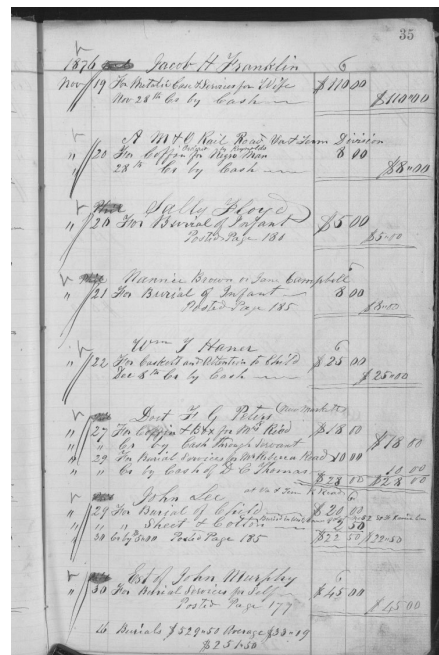 35
1876 Jacob H Franklin 6
Nov 19 For Metalic Case & Services for Wife $110 00
Nov 28th Cr by Cash $110=00
A M & O Rail Road Va & Tenn Division
" 20 For Coffin for Negro Man 8 00
" 28th Cr by Cash $8=00
Sally Floyd
" 20 For Burial of Infant $5 00
Posted Page 184 $5=00
Nannie Brown or Jane Campbell
" 21 For Burial of Infant 8 00
Posted Page 185 $8=00
Wm J Haner 6
" 22 For Casket and Attention to Child $25 00
Dec 8th Cr by Cash $25=00
Doct F G Peters (New Market)
" 27 For Coffin & Box for Mrs Read $18 00
" " Cr by Cash through Servant $18 00
" 29 For Burial Services for Road 10 00
" " Cr by Cash of D C Thomas 10 00
$28 00 $28 00
John Lee at Va & Tenn R Road 6
" 29 For Burial of Child $20 00
" " " Sheet & Cotton 2 50
" 30 Cr by Posted Page 185 $22 50 $22=50
Est of John Murphy 6
" 30 For Burial Services for Self $45 00
Posted Page 177 $45 00
16 Burials $529=50 Average $33=09
$251=50